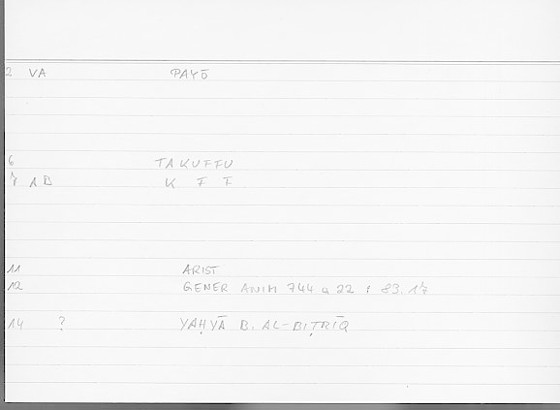 2 VA PAYŌ
6 TAKUFFU
7 AB K F F
11 ARIST
12 GENER ANIM 744 a 22 : 83.17
14 ? YAḤYĀ B. AL-BIṬRĪQ